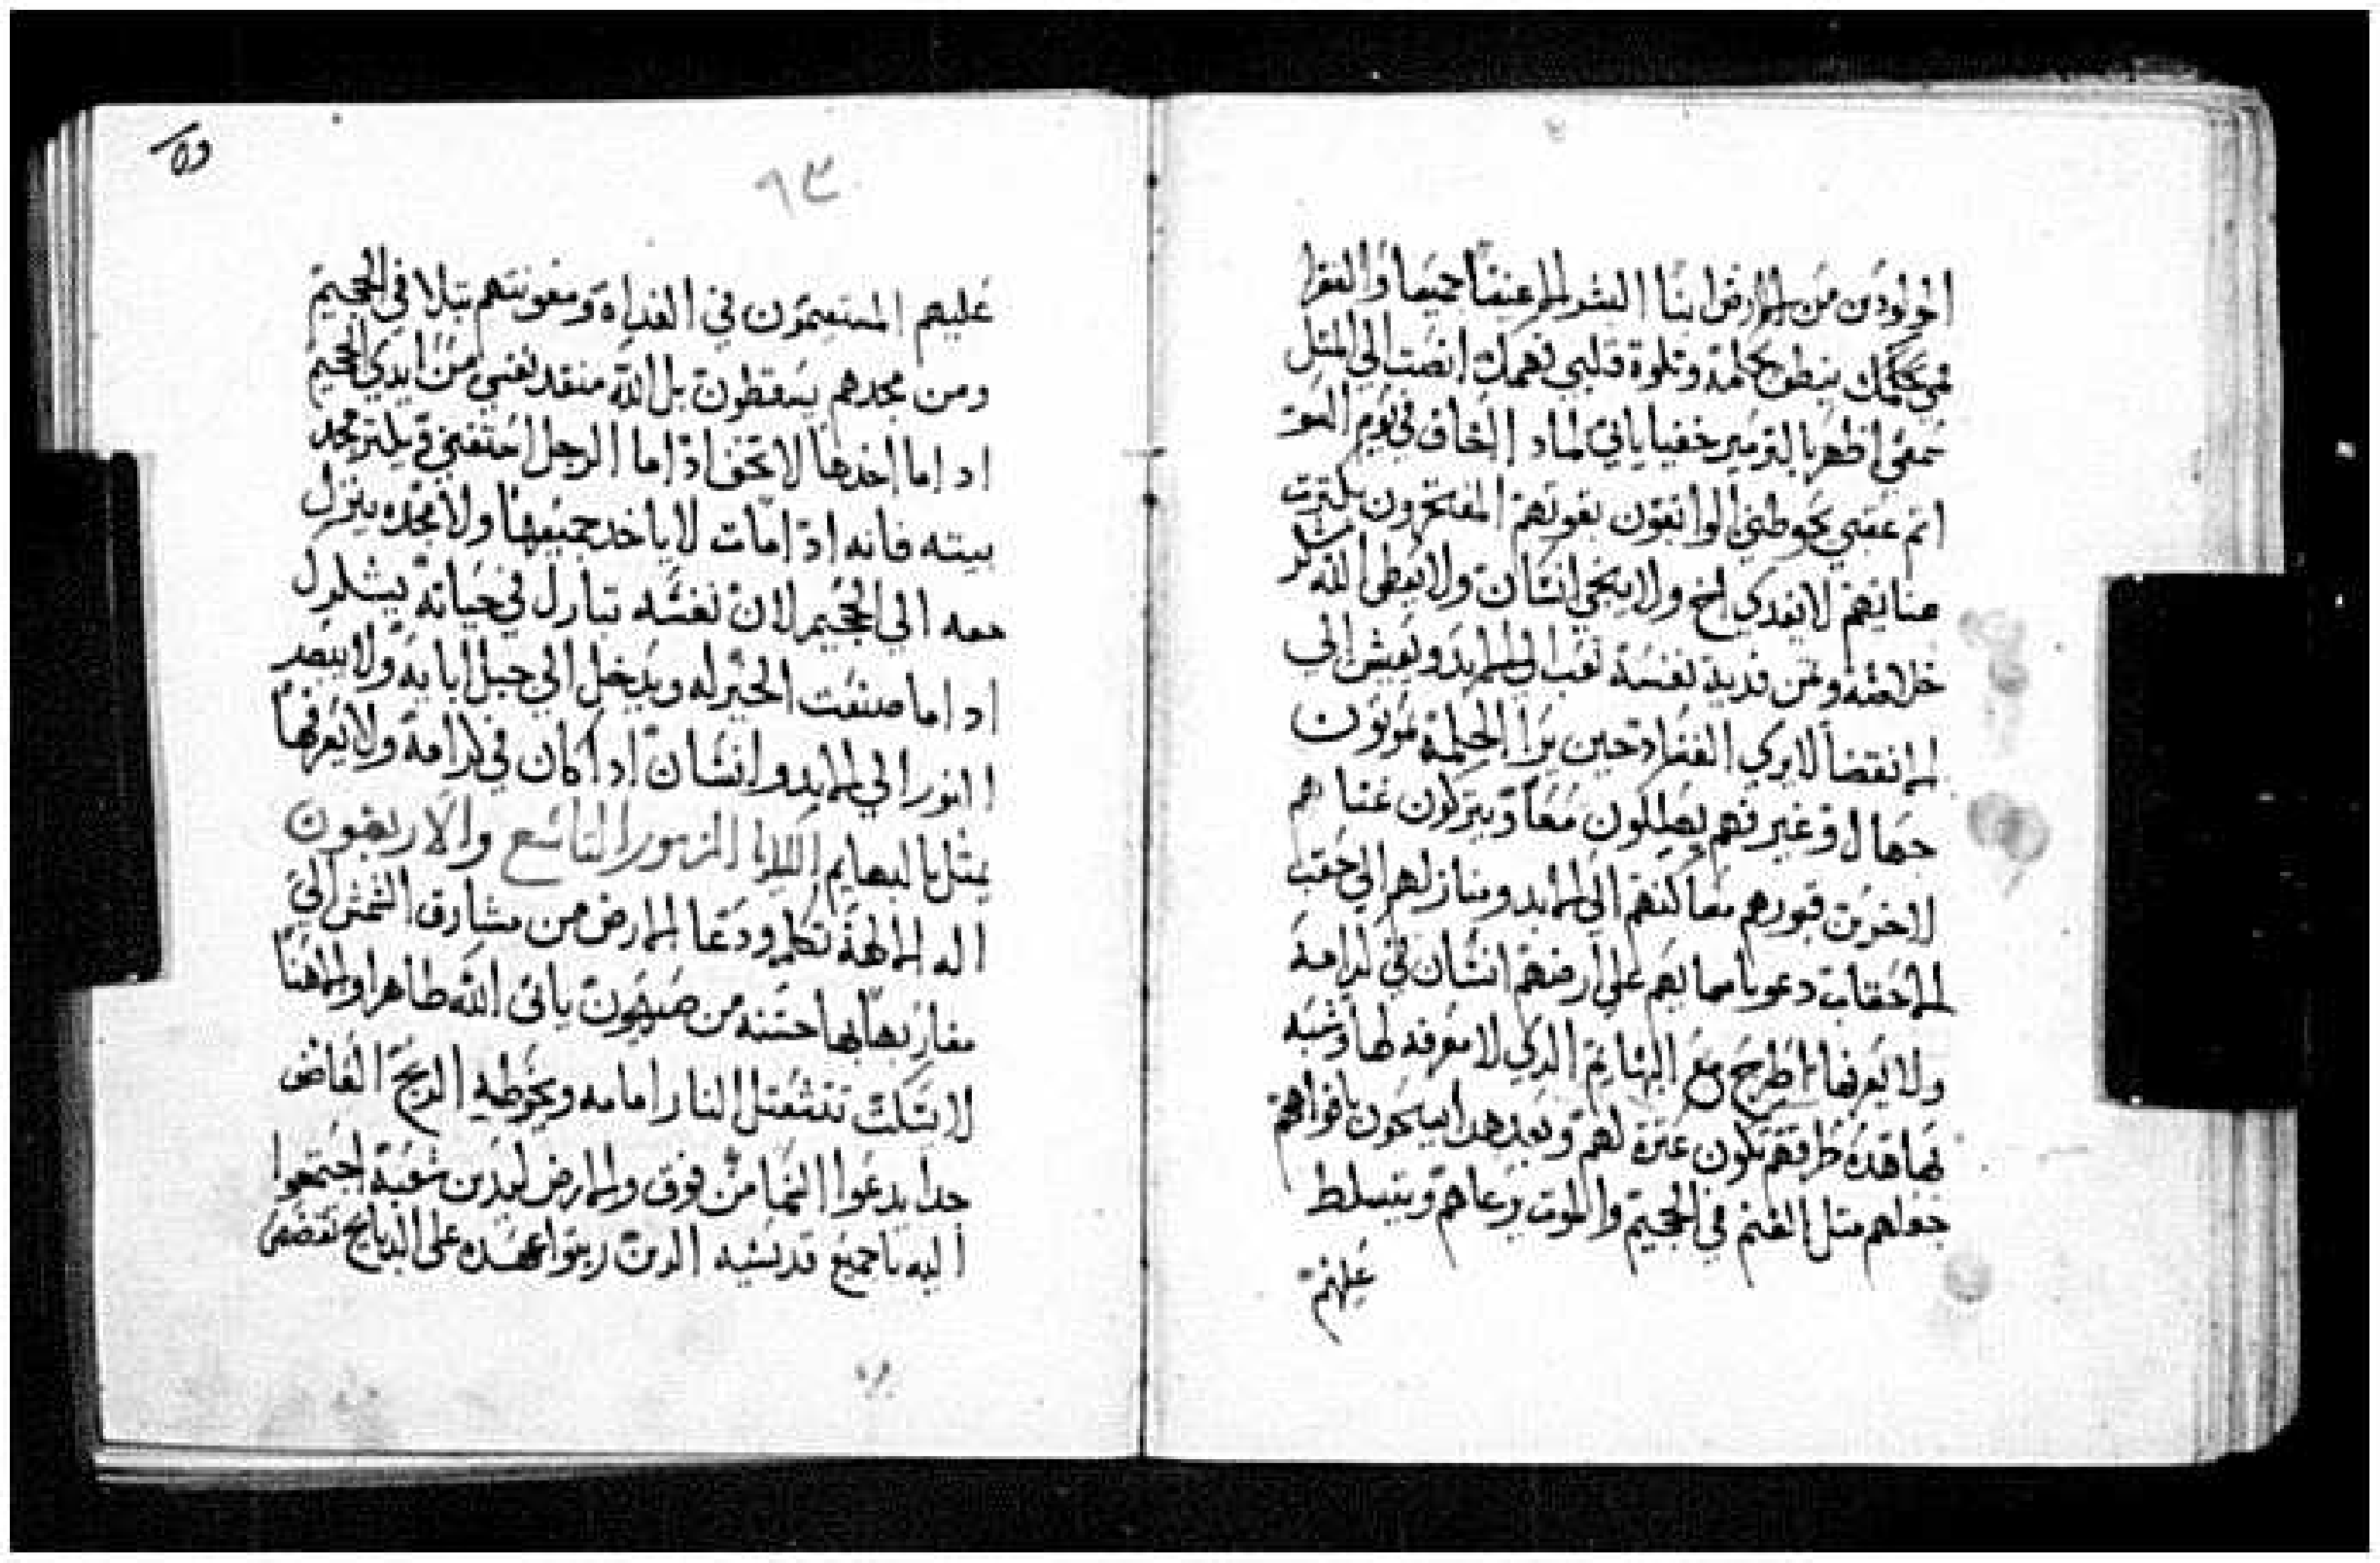 المولودين من الارض وابنا البشر الاغنيا جميعا والفقرا
فمي بحكمك ينطق بحكمة وتلاوة قلبي فهمك انصت الي المثل
سمعي اظهر بالترمير خفياياتي لمادا اخاف في يوم السو
اتم عقبي يحوطني الواثقون بقوتهم المفتخرون بكثرت
غنايهم لا يفدي اخ ولا ينجي انسان ولا يعطي الله
خلاصه وثمن فدية نفسه تعب الي الابد ويعيش الي
الانقضا لا يري الفساد حين يرا الحكمة يموتون
جهال وغير فهم يهلكون معا ويتركون غناهم
لاخرين قبورهم مساكنهم الي الابد ومنازلهم الي حقب
الاحقاب دعوا باسمايهم علي ارضهم انسان في كرامة
ولا يعرفها اطرح مع البهايم الدي لا معرفه لها وشبه
بها هده طرقهم تكون عترة لهم وبعد هدا يسبحون بافواههم
جعلهم متل الغنم في الجحيم والموت يرعاهم ويتسلط
عليهم
٩٣
عليهم المستقيمون في الغداة ومعونتهم تبلا في الجحيم
ومن مجدهم يسقطون بل الله منقد نفسي من ايدي الجحيم
ادا ما اخدها لا تخف ادا ما الرجل استغني ويكتر مجد
بيته فانه ادا مات لا ياخد جميعها ولا مجده ينزل
معه الي الجحيم لان نفسه تبارك في حياته يشكرك
ادا ما صنعت الخير له ويدخل الي جيل ابايه ولا يبصر
النور الي الابد وانسان ادا كان في كرامة ولا يعرفها
يمثل بالبهايم الليلويا المزمور التاسع والاربعون
اله الالهة تكلم ودعا الارض من مشارق الشمش الي
مغاربها بها حسنه من صهيون ياتي الله ظاهرا والاهنا
لا يسكت تشتعل النار امامه ويحوطه الريح العاصف
جدا يدعوا السما من فوق والارض ليدين شعبه اجتمعوا
اليه يا جميع قديسيه الدين ربتوا عهده علي الدبايح تقضي